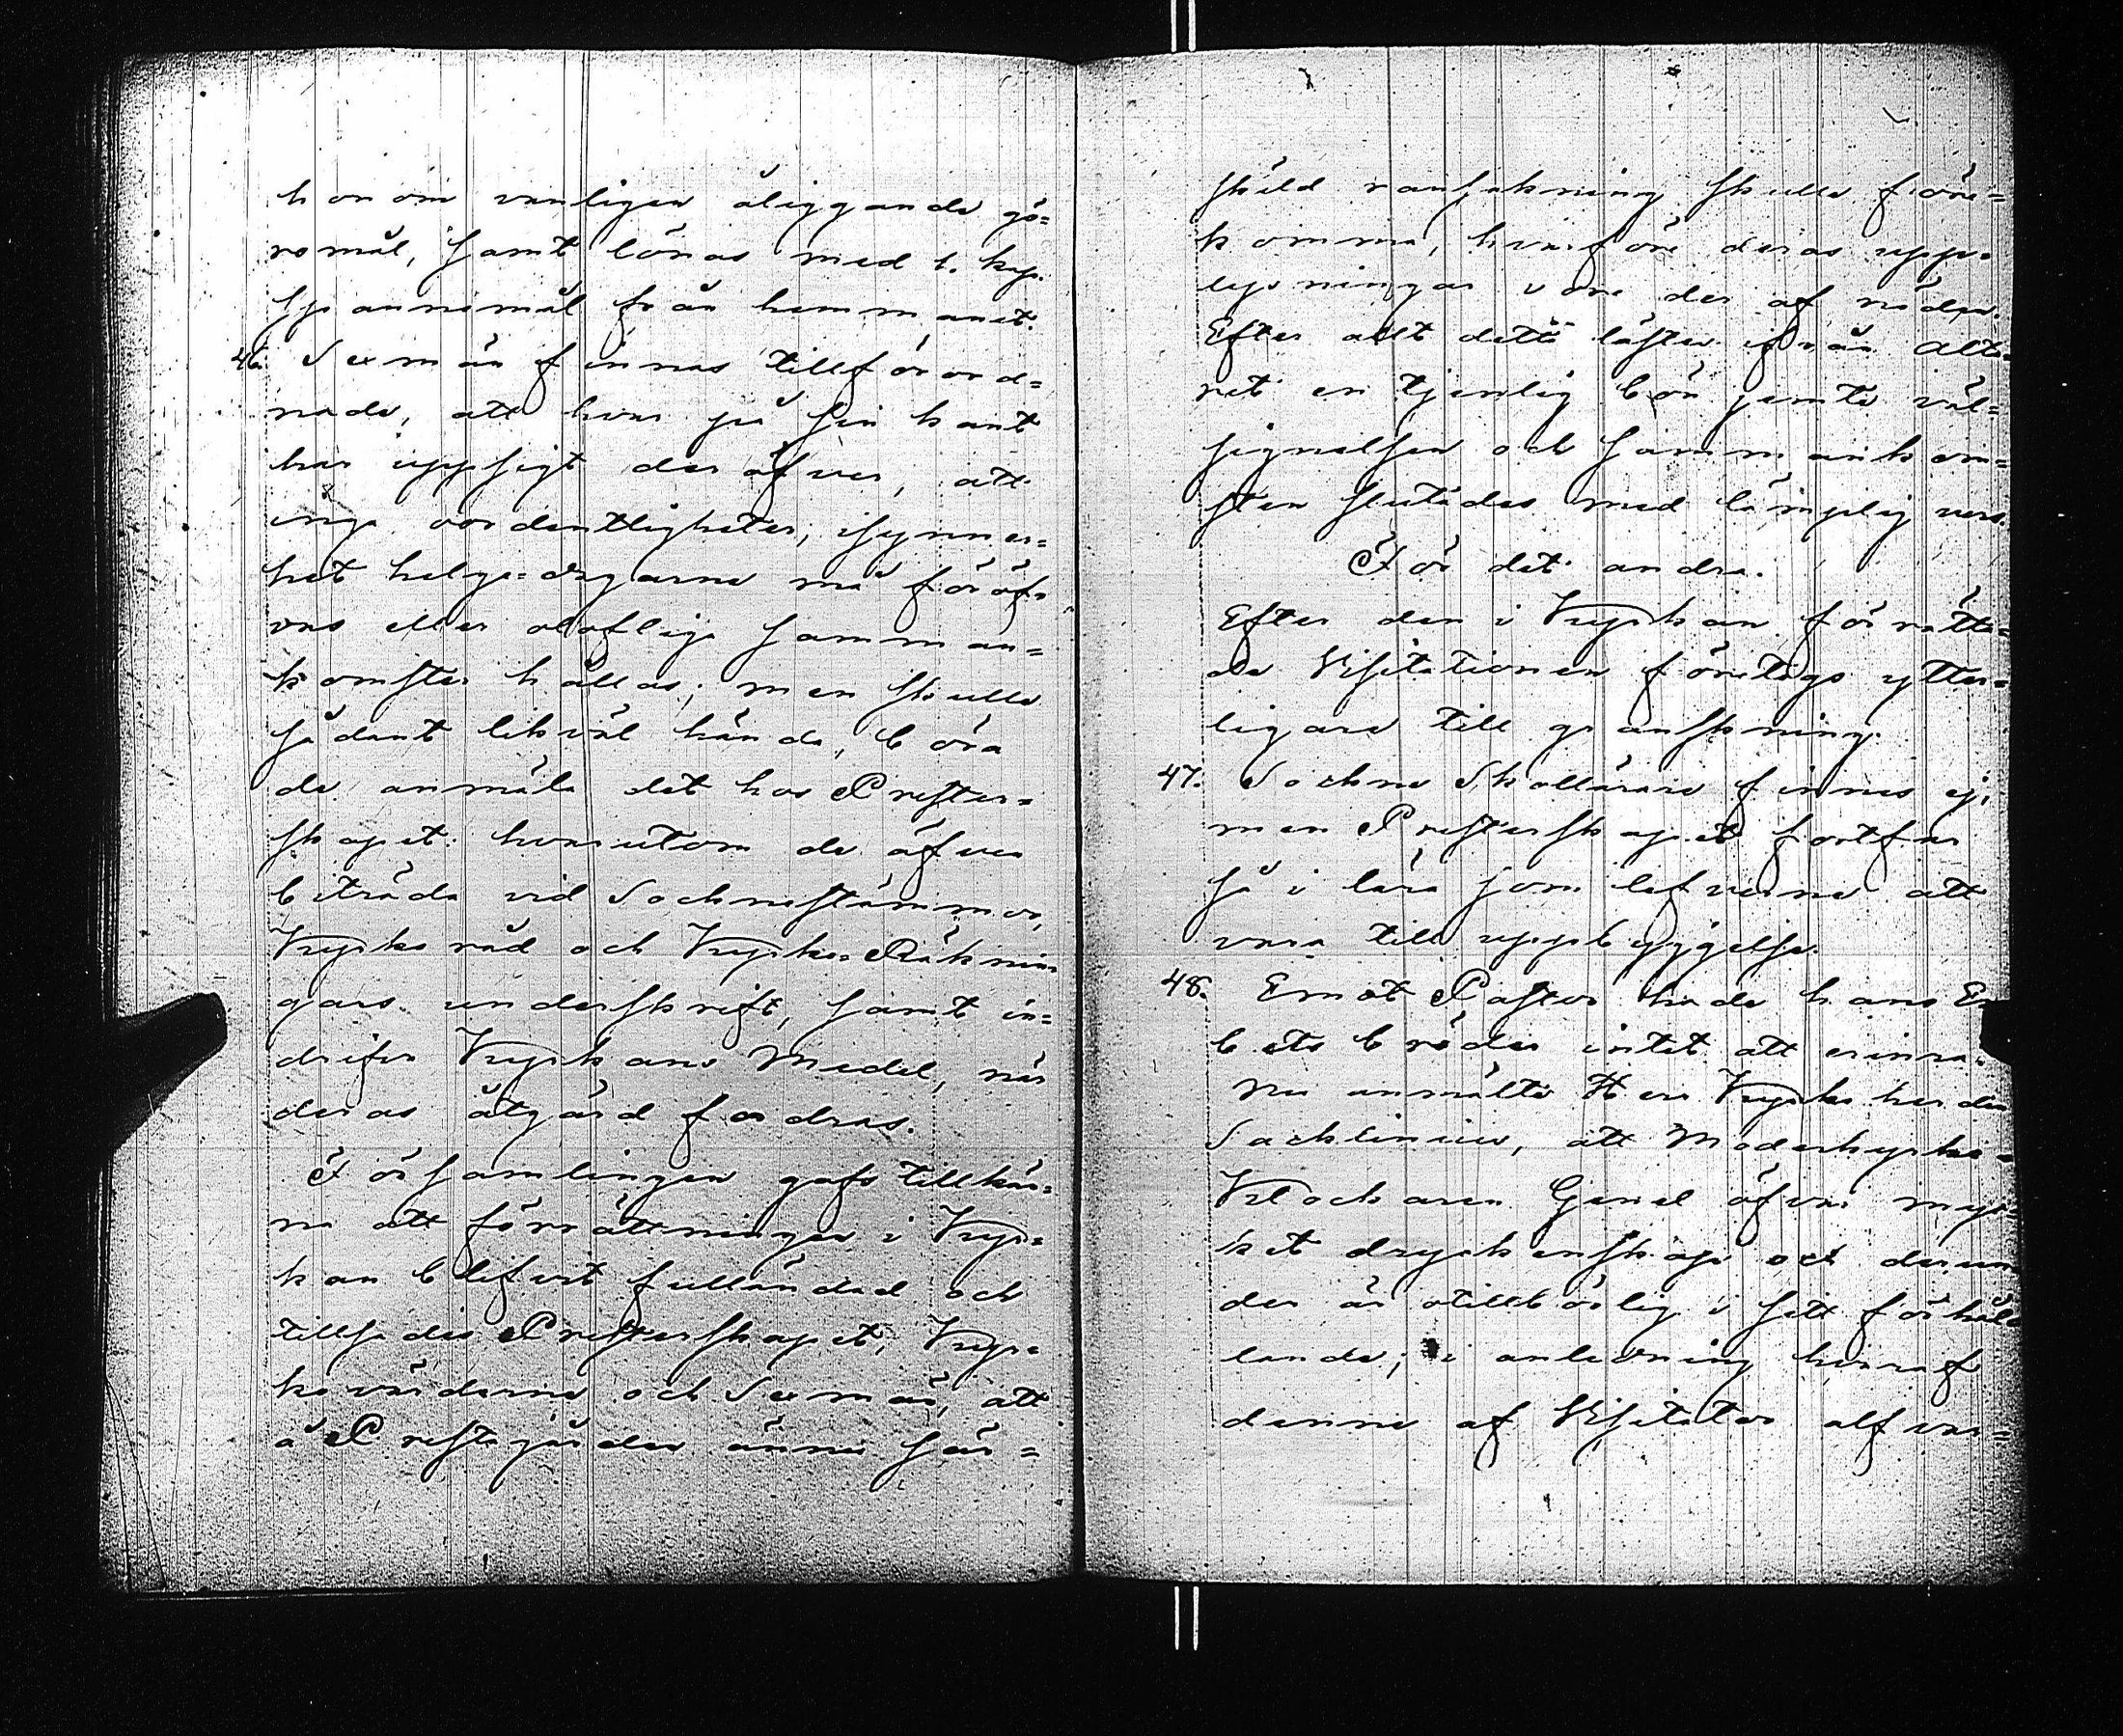 honom vanligen åliggande gö=
romål, samt lönas med 1. kp.
spannemål från hemmanet.
46. Sexmän finnas tillförord=
nade, att hvar på sin kant
har uppsigt deröfver, att
inga oordentligheter, isynner=
het helge=dagarne må föröf=
vas eller olofliga samman=
komster hållas; men skulle
sådant likväl hända, böra
de anmäla det hos Prester=
skapet: hvarutom de äfven
biträda vid Sochnestämmor,
Kyrko råd och Kyrko=Räknin
gars underskrift, samt in=
drifva Kyrkans Medel, när
deras åtgärd fordras.
Församlingen gafs tillkän=
na att förrättningen i Kyr=
kan blifvit fulländad och
tillsades Presterskapet, Kyr=
kovärdarne och Sexmän, att
å Prestegården ännu sär=
skild ransakning skulle före=
komma, hvarföre deras upp=
lysningar vore der af nöden.
Efter allt detta lästes ifrån Alta=
ret en tjenlig bön jemte väl=
signelsen och Sammankom=
sten slutades med lämplig vers.
För det andra.
Efter den i Kyrkan förrätta=
de Visitationen företogs ytter=
ligare till granskning.
47. Sochne Skollärare finnes ej,
men Presterskapet fortfar
så i lära som lefverne att
vara till uppbyggelse.
48. Emot Pastor hade hans Em
bets bröder intet att erinra.
Nu anmälte Herr Kyrko herden
Sacklinius, att Moderkyrko=
Klockaren Genel öfvar myc
ket dryckenskap och derun
der är otillbörlig i sitt förhål
lande; i anledning hvaraf
denne af Visitator alfvar=